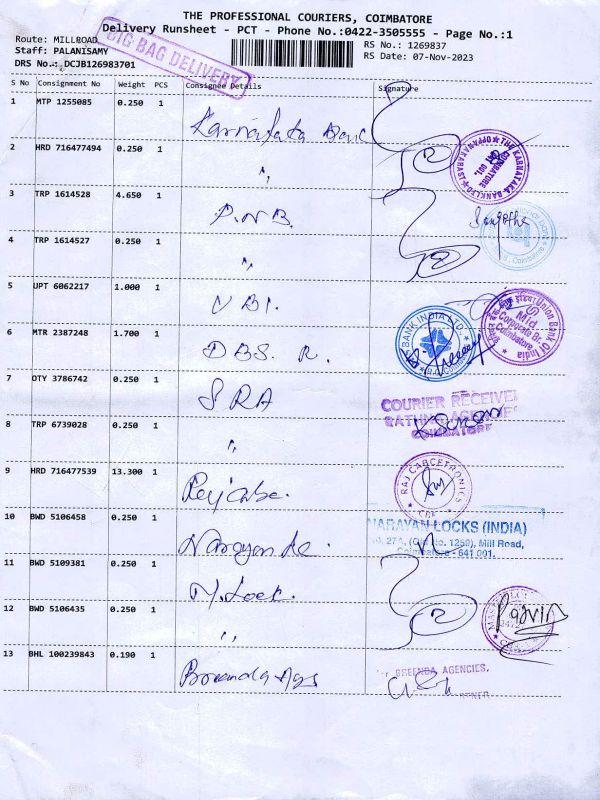 THE PROFESSIONAL COURIERS, COIMBATORE
Delivery Runsheet - PCT - Phone No.:0422-3505555 - Page No.:1
Route: MILLROAD
Staff: PALANISAMY
DRS No.: DCJB126983701
BIG BAG DELIVERY
RS No.: 1269837
RS Date: 07-Nov-2023
S No Consignment No Weight PCS Consignee Details Signature
1 MTP 1255085 0.250 1 Karnataka Bank
2 HRD 716477494 0.250 1 "
THE KARNATAKA BANK LTD
COIMBATORE
3 TRP 1614528 4.650 1 P.N.B.
Sangetha
Coimbatore
4 TRP 1614527 0.250 1 "
5 UPT 6062217 1.000 1 UBI.
Union Bank of India
Mid. Corporate Br.
Coimbatore
6 MTR 2387248 1.700 1 DBS. R.
BANK INDIA LTD.
7 OTY 3786742 0.250 1 SRA
COURIER RECEIVED
COIMBATORE
8 TRP 6739028 0.250 1 "
9 HRD 716477539 13.300 1
RAJ CABCETRONICS
CBE
10 BWD 5106458 0.250 1
NARAYAN LOCKS (INDIA)
27A, (Old No. 1259), Mill Road,
Coimbatore - 641 001.
11 BWD 5109381 0.250 1 M. Lock.
12 BWD 5106435 0.250 1 "
Pavin
13 BHL 100239843 0.190 1
BREENDA AGENCIES,